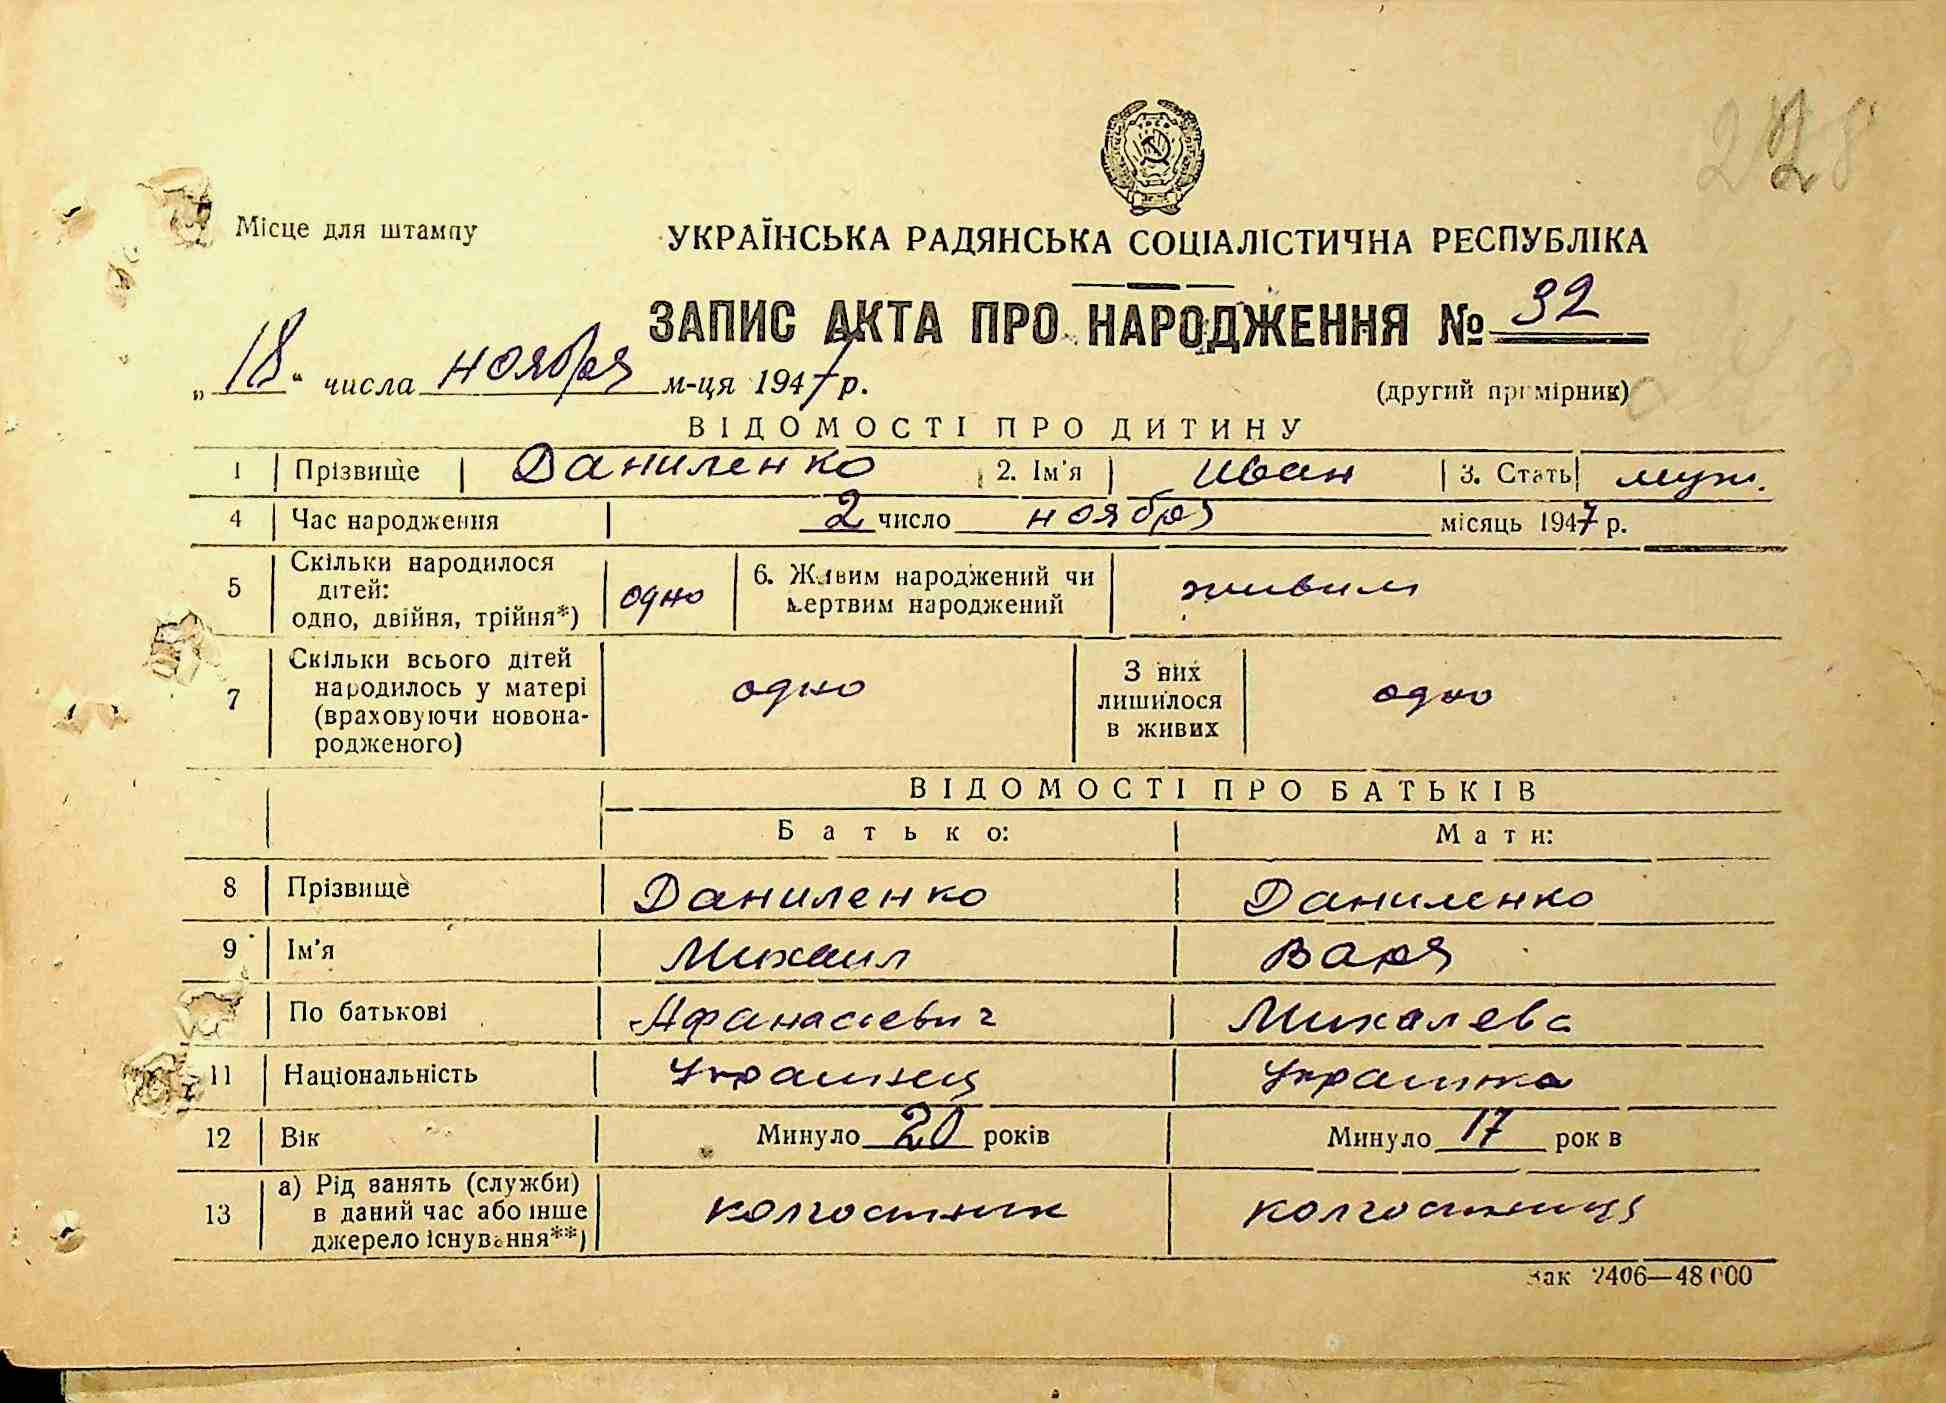 Місце для штампу
УКРАЇНСЬКА РАДЯНСЬКА СОЦІАЛІСТИЧНА РЕСПУБЛІКА
ЗАПИС АКТА ПРО НАРОДЖЕННЯ № 32
„18“ числа ноября м-ця 1947 р.
(другий примірник)
ВІДОМОСТІ ПРО ДИТИНУ
1 Прізвище Даниленко 2. Ім'я Иван 3. Стать муж.
4 Час народження 2 число ноября місяць 1947 р.
5 Скільки народилося дітей: одно, двійня, трійня*) одно 6. Живим народжений чи мертвим народжений живим
7 Скільки всього дітей народилось у матері (враховуючи новонародженого) одно З них лишилося в живих одно
ВІДОМОСТІ ПРО БАТЬКІВ
Батько: Мати:
8 Прізвище Даниленко Даниленко
9 Ім'я Михаил Варя
По батькові Афанасиевич Михалева
11 Національність Украинец Украинка
12 Вік Минуло 20 років Минуло 17 рок в
13 а) Рід занять (служби) в даний час або інше джерело існування**) колгостник колгостница
Зак 2406—48 000